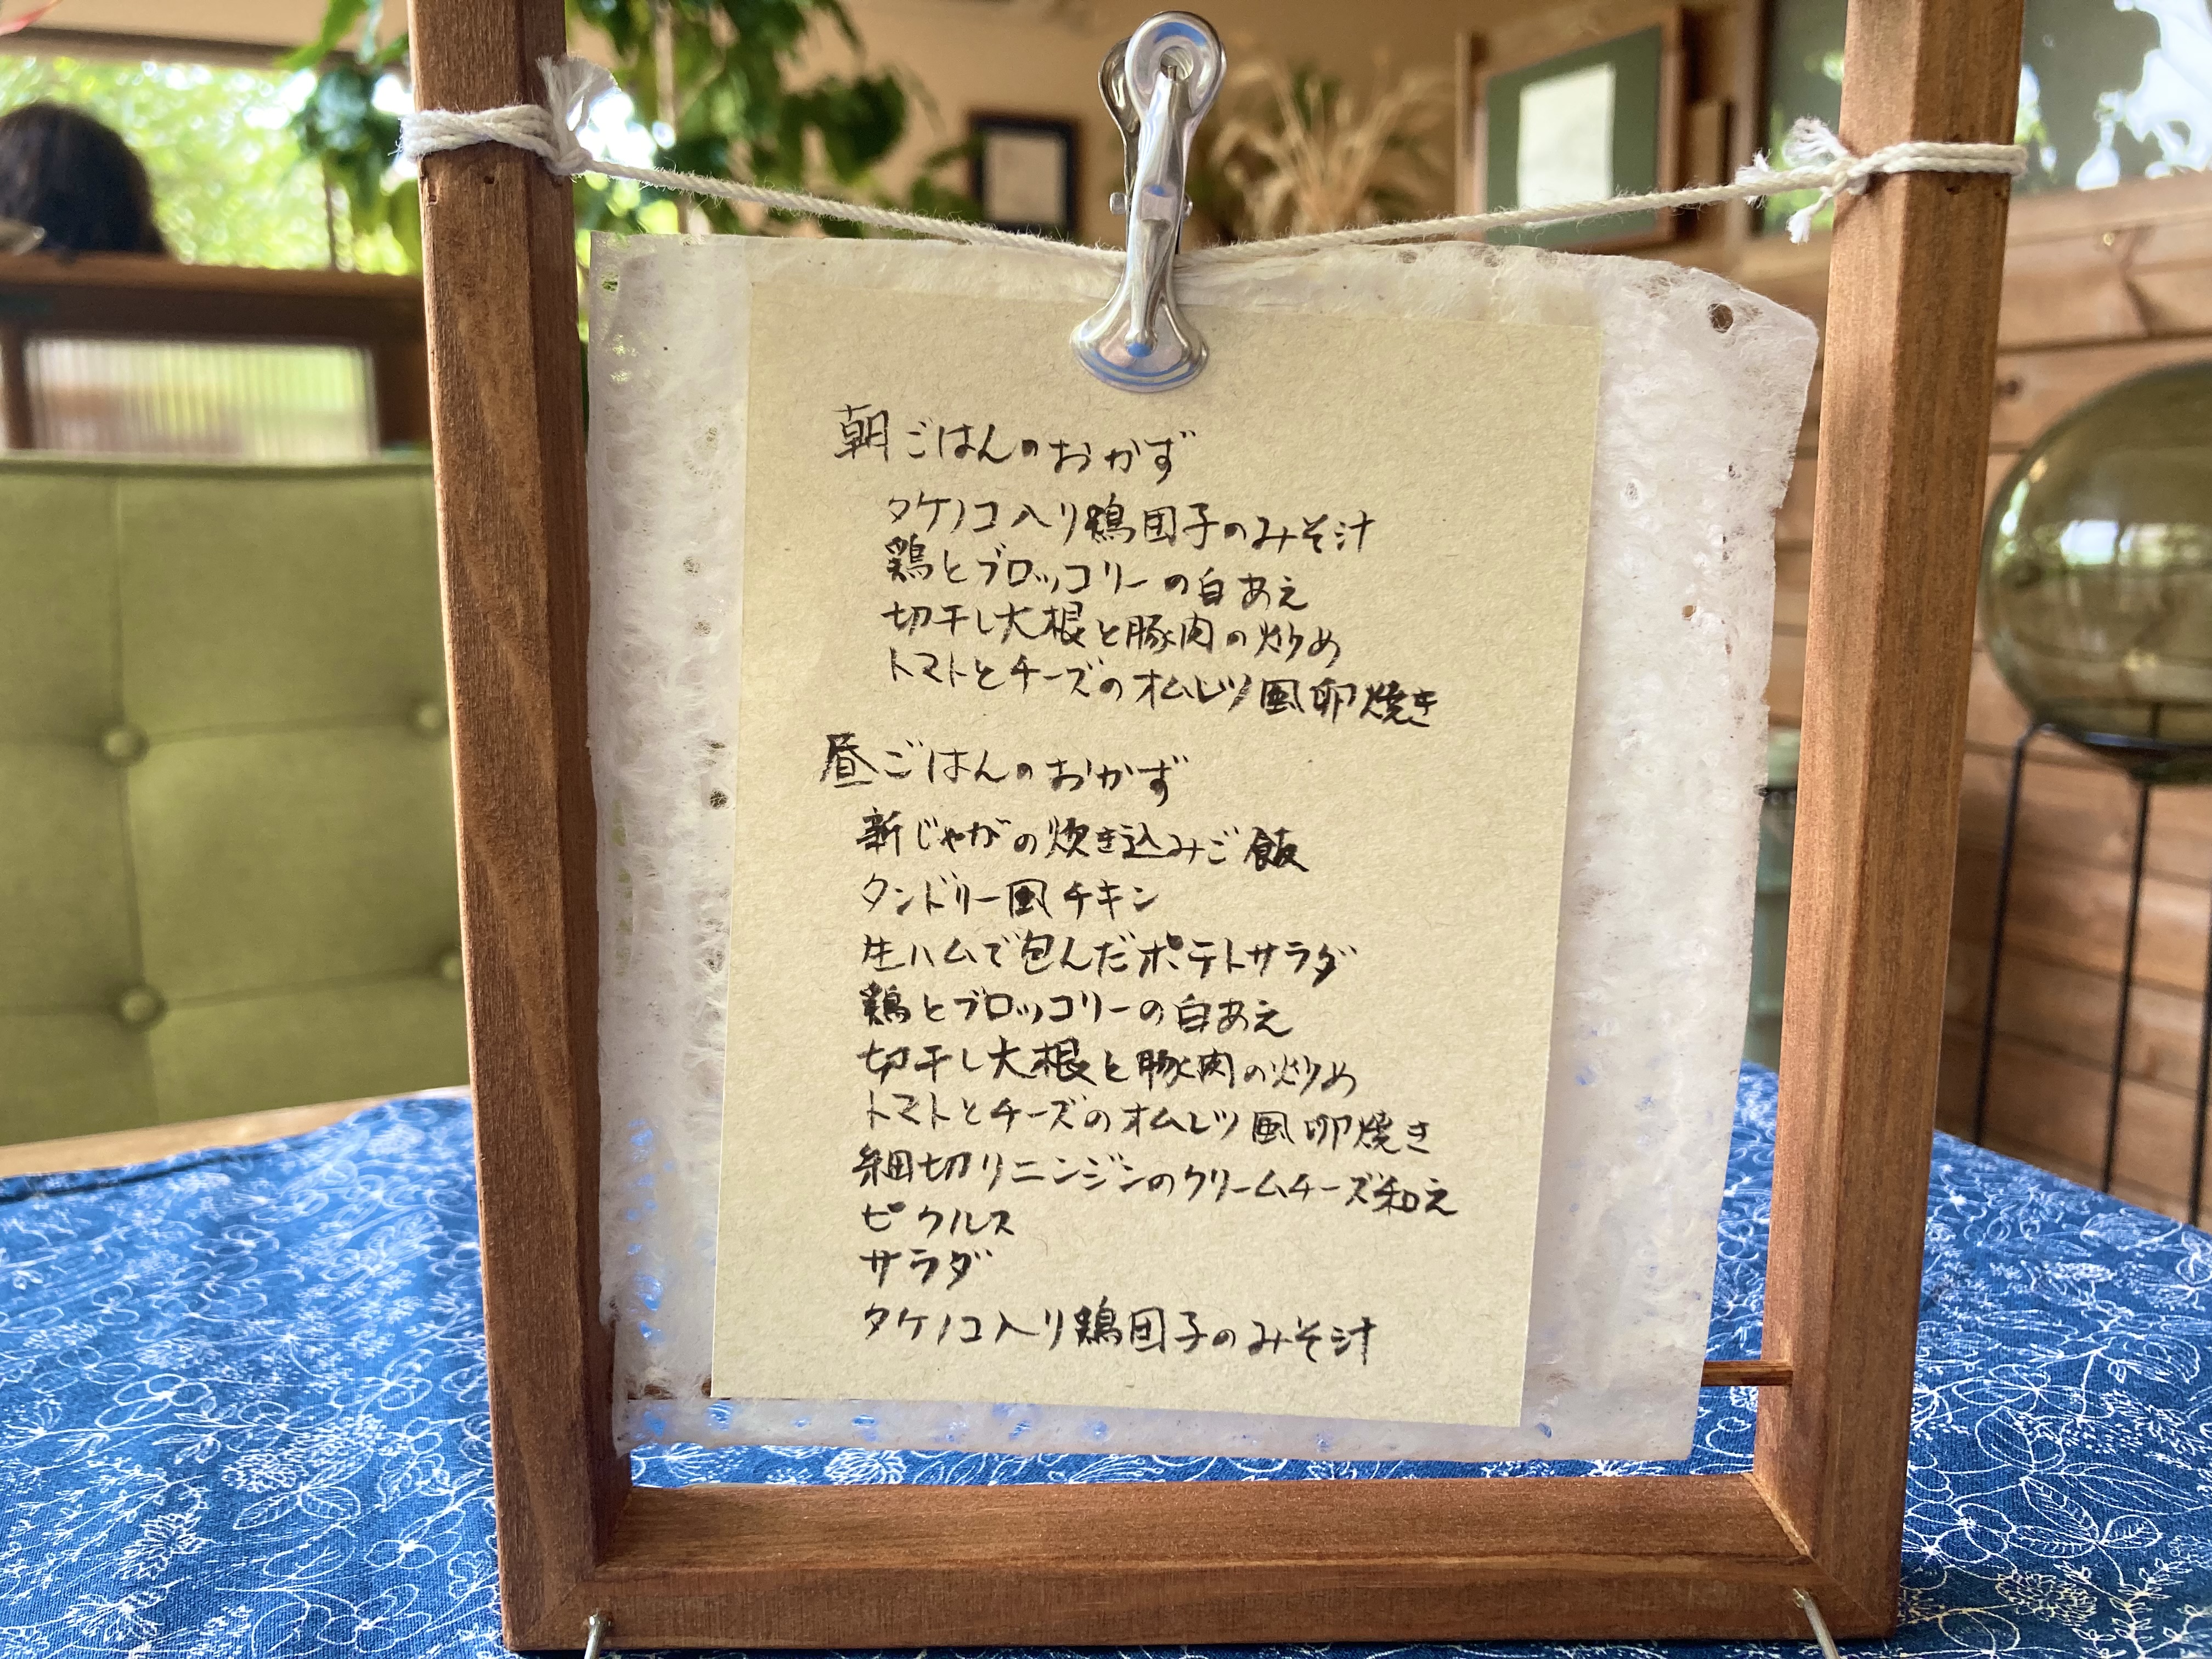 朝ごはんのおかず
タケノコ入り鶏団子のみそ汁
鶏とブロッコリーの白あえ
切干し大根と豚肉の炒め
トマトとチーズのオムレツ風卵焼き
昼ごはんのおかず
新じゃがの炊き込みご飯
タンドリー風チキン
生ハムで包んだポテトサラダ
鶏とブロッコリーの白あえ
切干し大根と豚肉の炒め
トマトとチーズのオムレツ風卵焼き
細切りニンジンのクリームチーズ和え
ピクルス
サラダ
タケノコ入り鶏団子のみそ汁